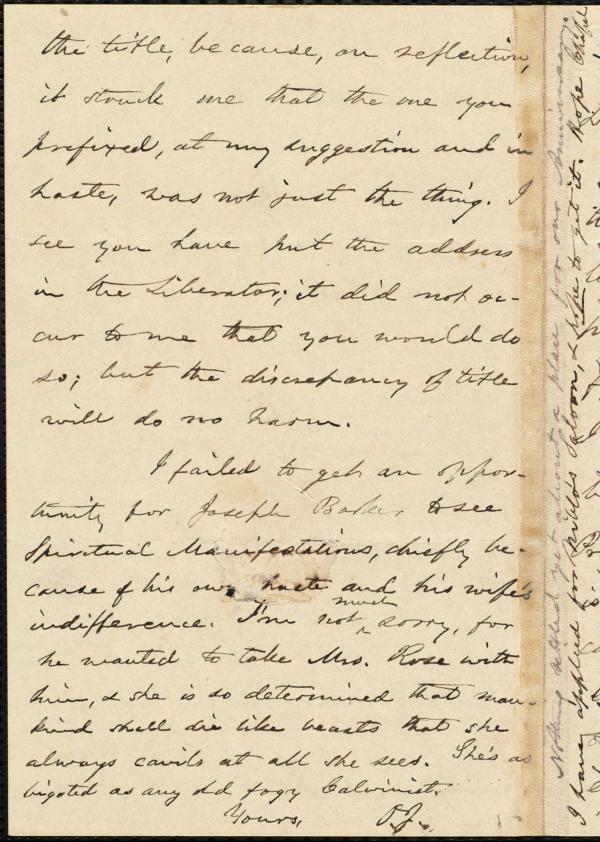 the title, because, on reflection,
it struck me that the one you
prefixed, at my suggestion and in
haste, was not just the thing. I
see you have put the address
in the Liberator; it did not oc-
cur to me that you would do
so; but the discrepancy of title
will do no harm.
I failed to get an oppor-
tunity for Joseph Barker to see
Spiritual Manifestations, chiefly be-
cause of his own haste and his wife's
indifference. I'm not much sorry, for
he wanted to take Mrs. Rose with
him, & she is so determined that man-
kind shall die like beasts that she
always cavils at all she sees. She's as
bigoted as any old fogy Calvinist.
Yours,
Nothing settled yet about a place for our Anniversary.
I have applied for Niblo's Saloon, & hope to get it. Hope Chapel